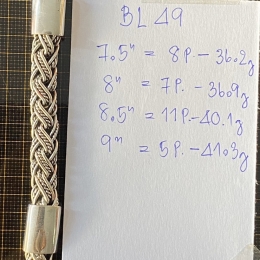 BL 49
7.5" = 8P. - 36.2g
8" = 7P. - 36.9g
8.5" = 11P. - 40.1g
9" = 5P. - 41.3g